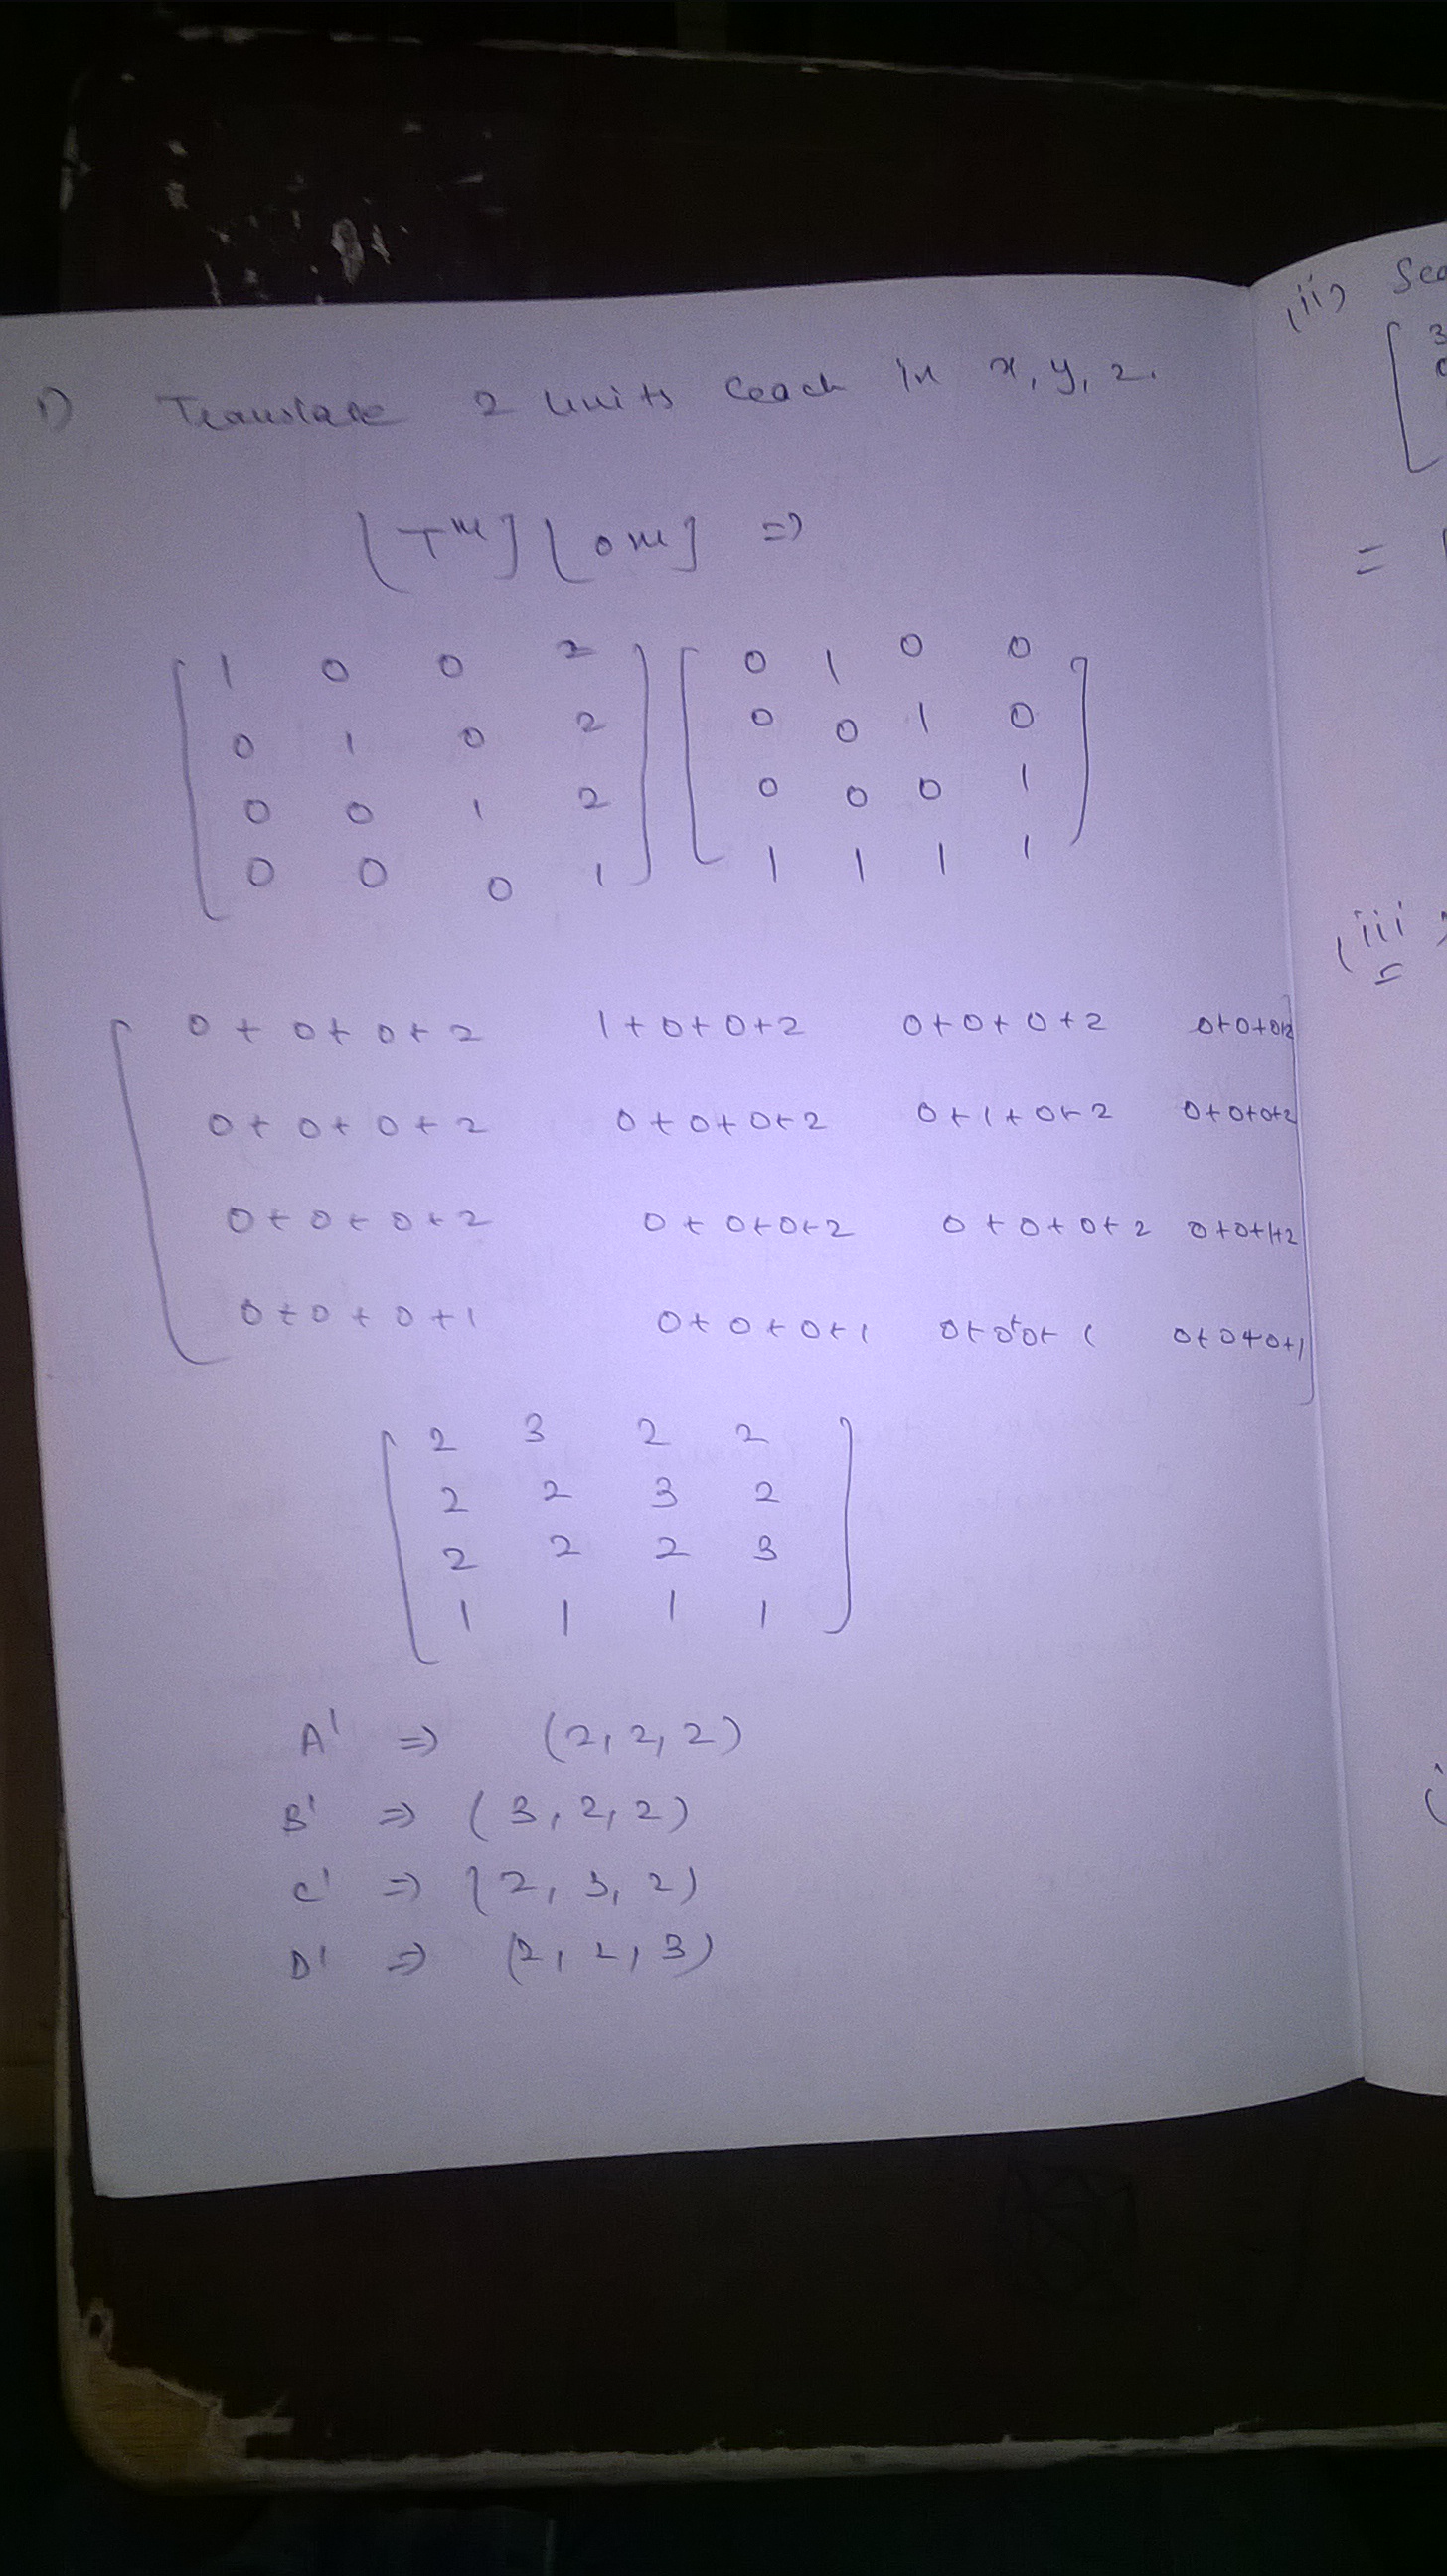 1) Translate 2 units each in x, y, z.
[Tᵐ] [om] =>
[ 1 0 0 2 ] [ 0 1 0 0 ]
0 1 0 2 0 0 1 0
0 0 1 2 0 0 0 1
0 0 0 1 1 1 1 1
[ 0 + 0 + 0 + 2 1 + 0 + 0 + 2 0 + 0 + 0 + 2 0+0+0+2 ]
0 + 0 + 0 + 2 0 + 0 + 0 + 2 0 + 1 + 0 + 2 0+0+0+2
0 + 0 + 0 + 2 0 + 0 + 0 + 2 0 + 0 + 0 + 2 0+0+1+2
0 + 0 + 0 + 1 0 + 0 + 0 + 1 0 + 0 + 0 + 1 0+0+0+1
[ 2 3 2 2 ]
2 2 3 2
2 2 2 3
1 1 1 1
A' => (2, 2, 2)
B' => (3, 2, 2)
C' => (2, 3, 2)
D' => (2, 2, 3)
(ii)
[ 3
=
(iii)